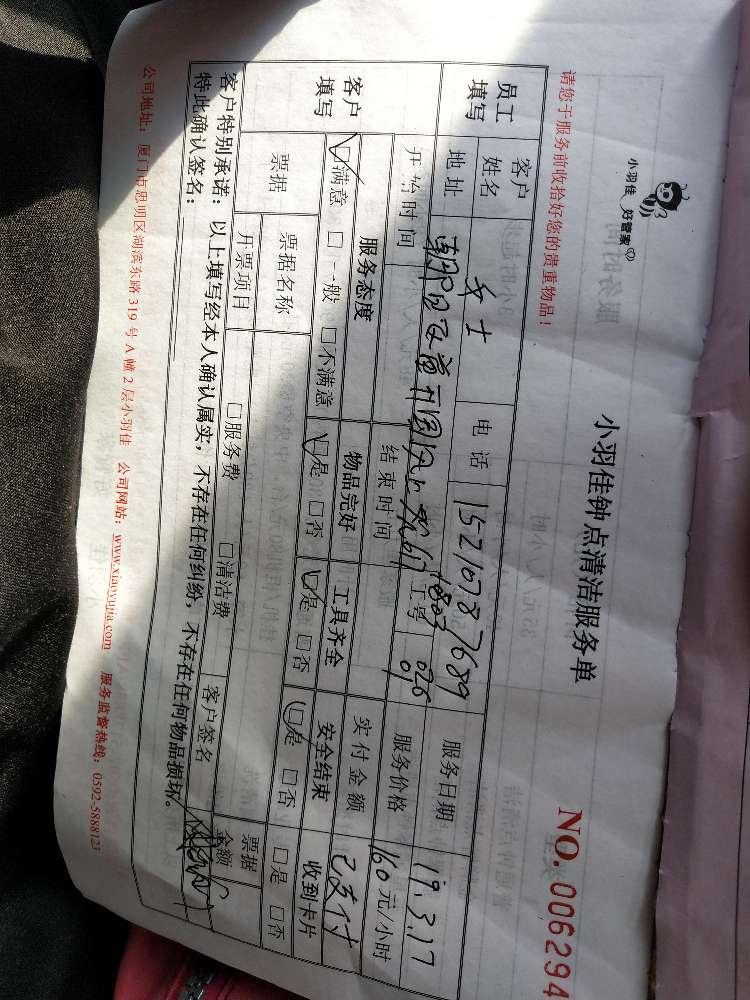 小羽佳 好管家
小羽佳钟点清洁服务单
NO.006294
请您于服务前收拾好您的贵重物品!
员工填写
客户姓名 女士 电话 15210787689 服务日期 19.3.17
地址 工号 026 服务价格 160元/小时
开始时间 结束时间 实付金额 已支付
客户填写
服务态度 物品完好 工具齐全 安全结束 收到卡片
☑满意 □一般 □不满意 ☑是 □否 ☑是 □否 ☑是 □否 □是 □否
票据 票据名称 票据金额
开票项目 □服务费 □清洁费 客户签名
客户特别承诺:以上填写经本人确认属实,不存在任何纠纷,不存在任何物品损坏。
特此确认签名:
公司地址:厦门市思明区湖滨东路 319 号 A 幢 2 层小羽佳 公司网站:www.xiaoyujia.com 服务监督热线:0592-5888123